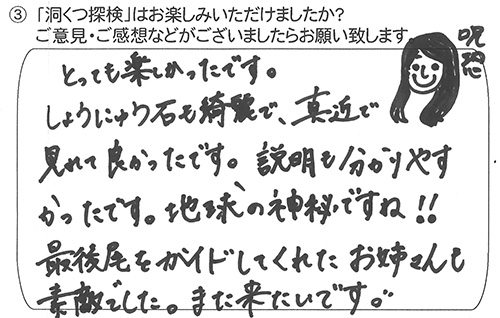 ③「洞くつ探検」はお楽しみいただけましたか?
ご意見・ご感想などがございましたらお願い致します
とっても楽しかったです。
しょうにゅう石も綺麗で、真近で
見れて良かったです。説明も分かりやす
かったです。地球の神秘ですね!!
最後尾をガイドしてくれたお姉さんも
素敵でした。また来たいです。